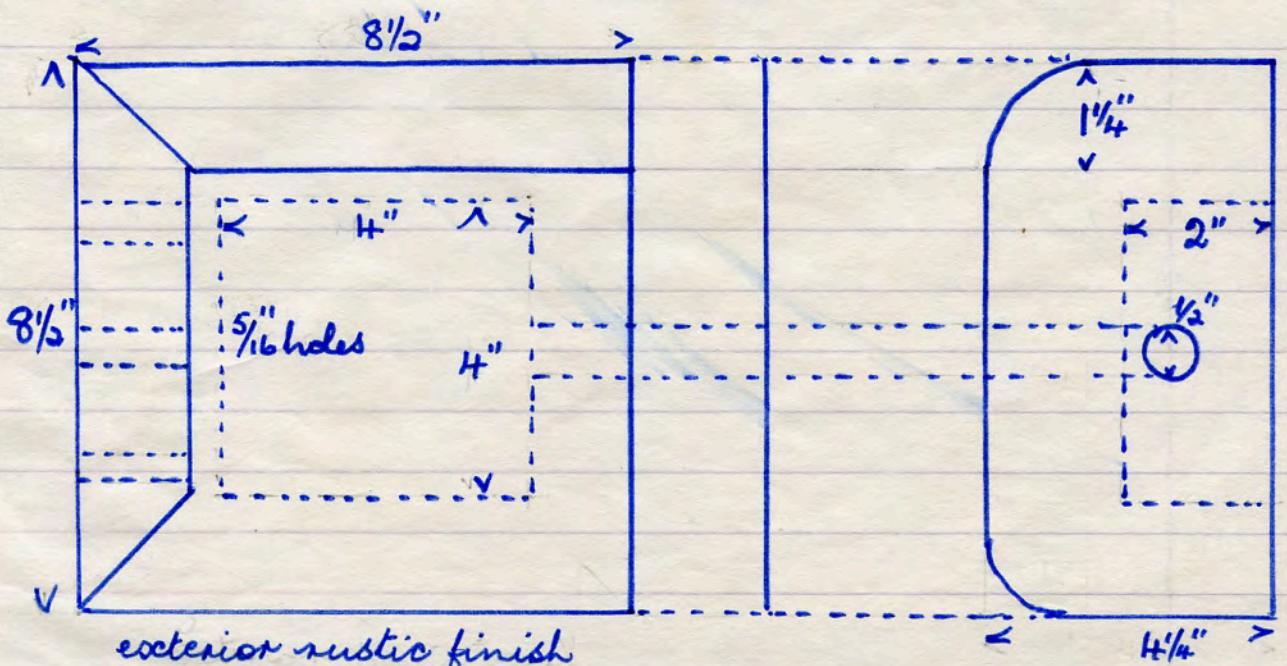 8½"
1¼"
4"
2"
8½"
5/16" holes
4"
½"
exterior rustic finish
4¼"